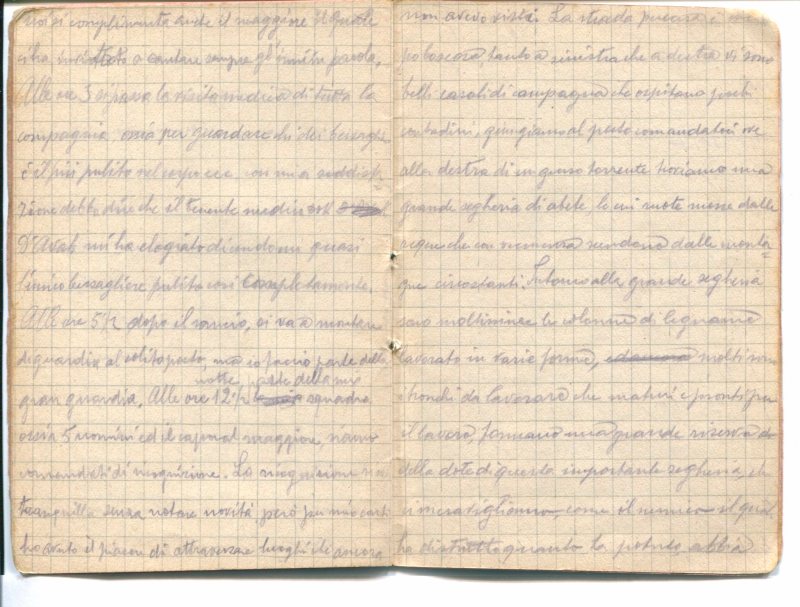 noi si complimenta anche il maggiore il quale
ci ha invitato a cantare sempre gl'inni in parola.
Alle ore 3 si passa la visita medica di tutta la
compagnia, ossia per guardare chi dei bersagl.
è il più pulito nel corpo ecc. con mia soddisfa
zione debbo dire che il tenente medico sott.
D'Avab mi ha elogiato dicendomi quasi
l'unico bersagliere pulito così completamente.
Alle ore 5½ dopo il rancio, si va a montare
di guardia al solito posto, ma io faccio parte della
gran guardia. Alle ore 12½ notte, parte della mia squadra
ossia 5 uomini ed il caporal maggiore, siamo
comandati di
tranquilla senza notare novità però per mio conto
ho avuto il piacere di attraversare luoghi che ancora
non avevo visti. La strada
po boscosa, tanto a sinistra che a destra vi sono
belli casoli di campagna che ospitano pochi
contadini, giungiamo al posto comandatoci ove
alla destra di un grosso torrente troviamo una
grande segheria di abete, le cui ruote mosse dalle
acque che con veemenza scendono dalle monta=
gne circostanti. Intorno alla grande segheria
sono moltissime le colonne di legname
lavorato in varie forme, molti
tronchi da lavorare che maturi e pronti per
il lavoro, formano una grande riserva
della dote di questa importante segheria, che
ci meravigliamo, come il nemico il quale
ha distrutto quanto ha potuto abbia